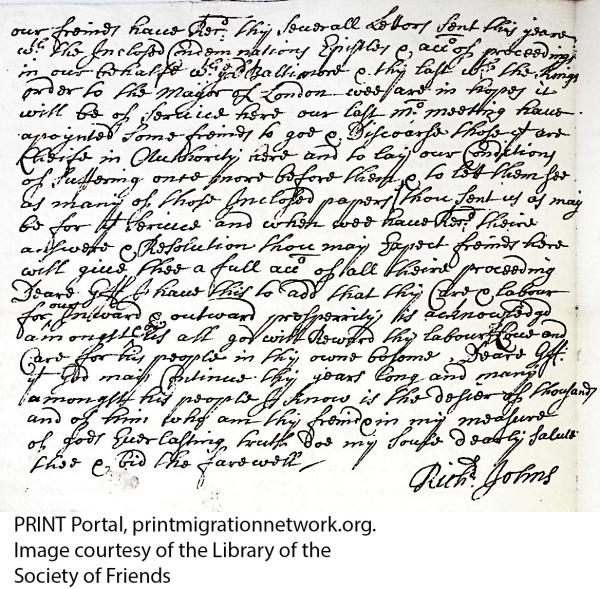 our freinds have Recd. thy severall Letters sent this yeare
wth. the Inclosed Condemnations Epistles & acco of proceedings
in our behalfe wth. ye Ld Baltimore & thy last wth. the Kings
order to the Mayor of London wee are in hopes it
will be of service here our last mo. meeting have
apoynted some freinds to goe & Discourse those yt are
Cheife in Authority here and to lay our Conditions
of suffering once more before them & to lett them see
as many of those Inclosed papers thou sent us as may
be for ye service and when wee have Recd. theire
answere & Resolution thou may Expect freinds here
will give thee a full acco of all theire proceeding
Deare G:ff I have this to add that thy Care & labour
for our Inward & outward prosperrity is acknowledgd
amongst us all god will Reward thy labour Love and
Care for his people in thy owne bosome, Deare G:ff.
yt God may Continue thy years long and many
amongst his people I know is the desier of thousands
and of him who am thy freind in my measure
of gods Everlasting truth Doe my soule dearly salute
thee & bid the farewell
Richd Johns
PRINT Portal, printmigrationnetwork.org.
Image courtesy of the Library of the
Society of Friends